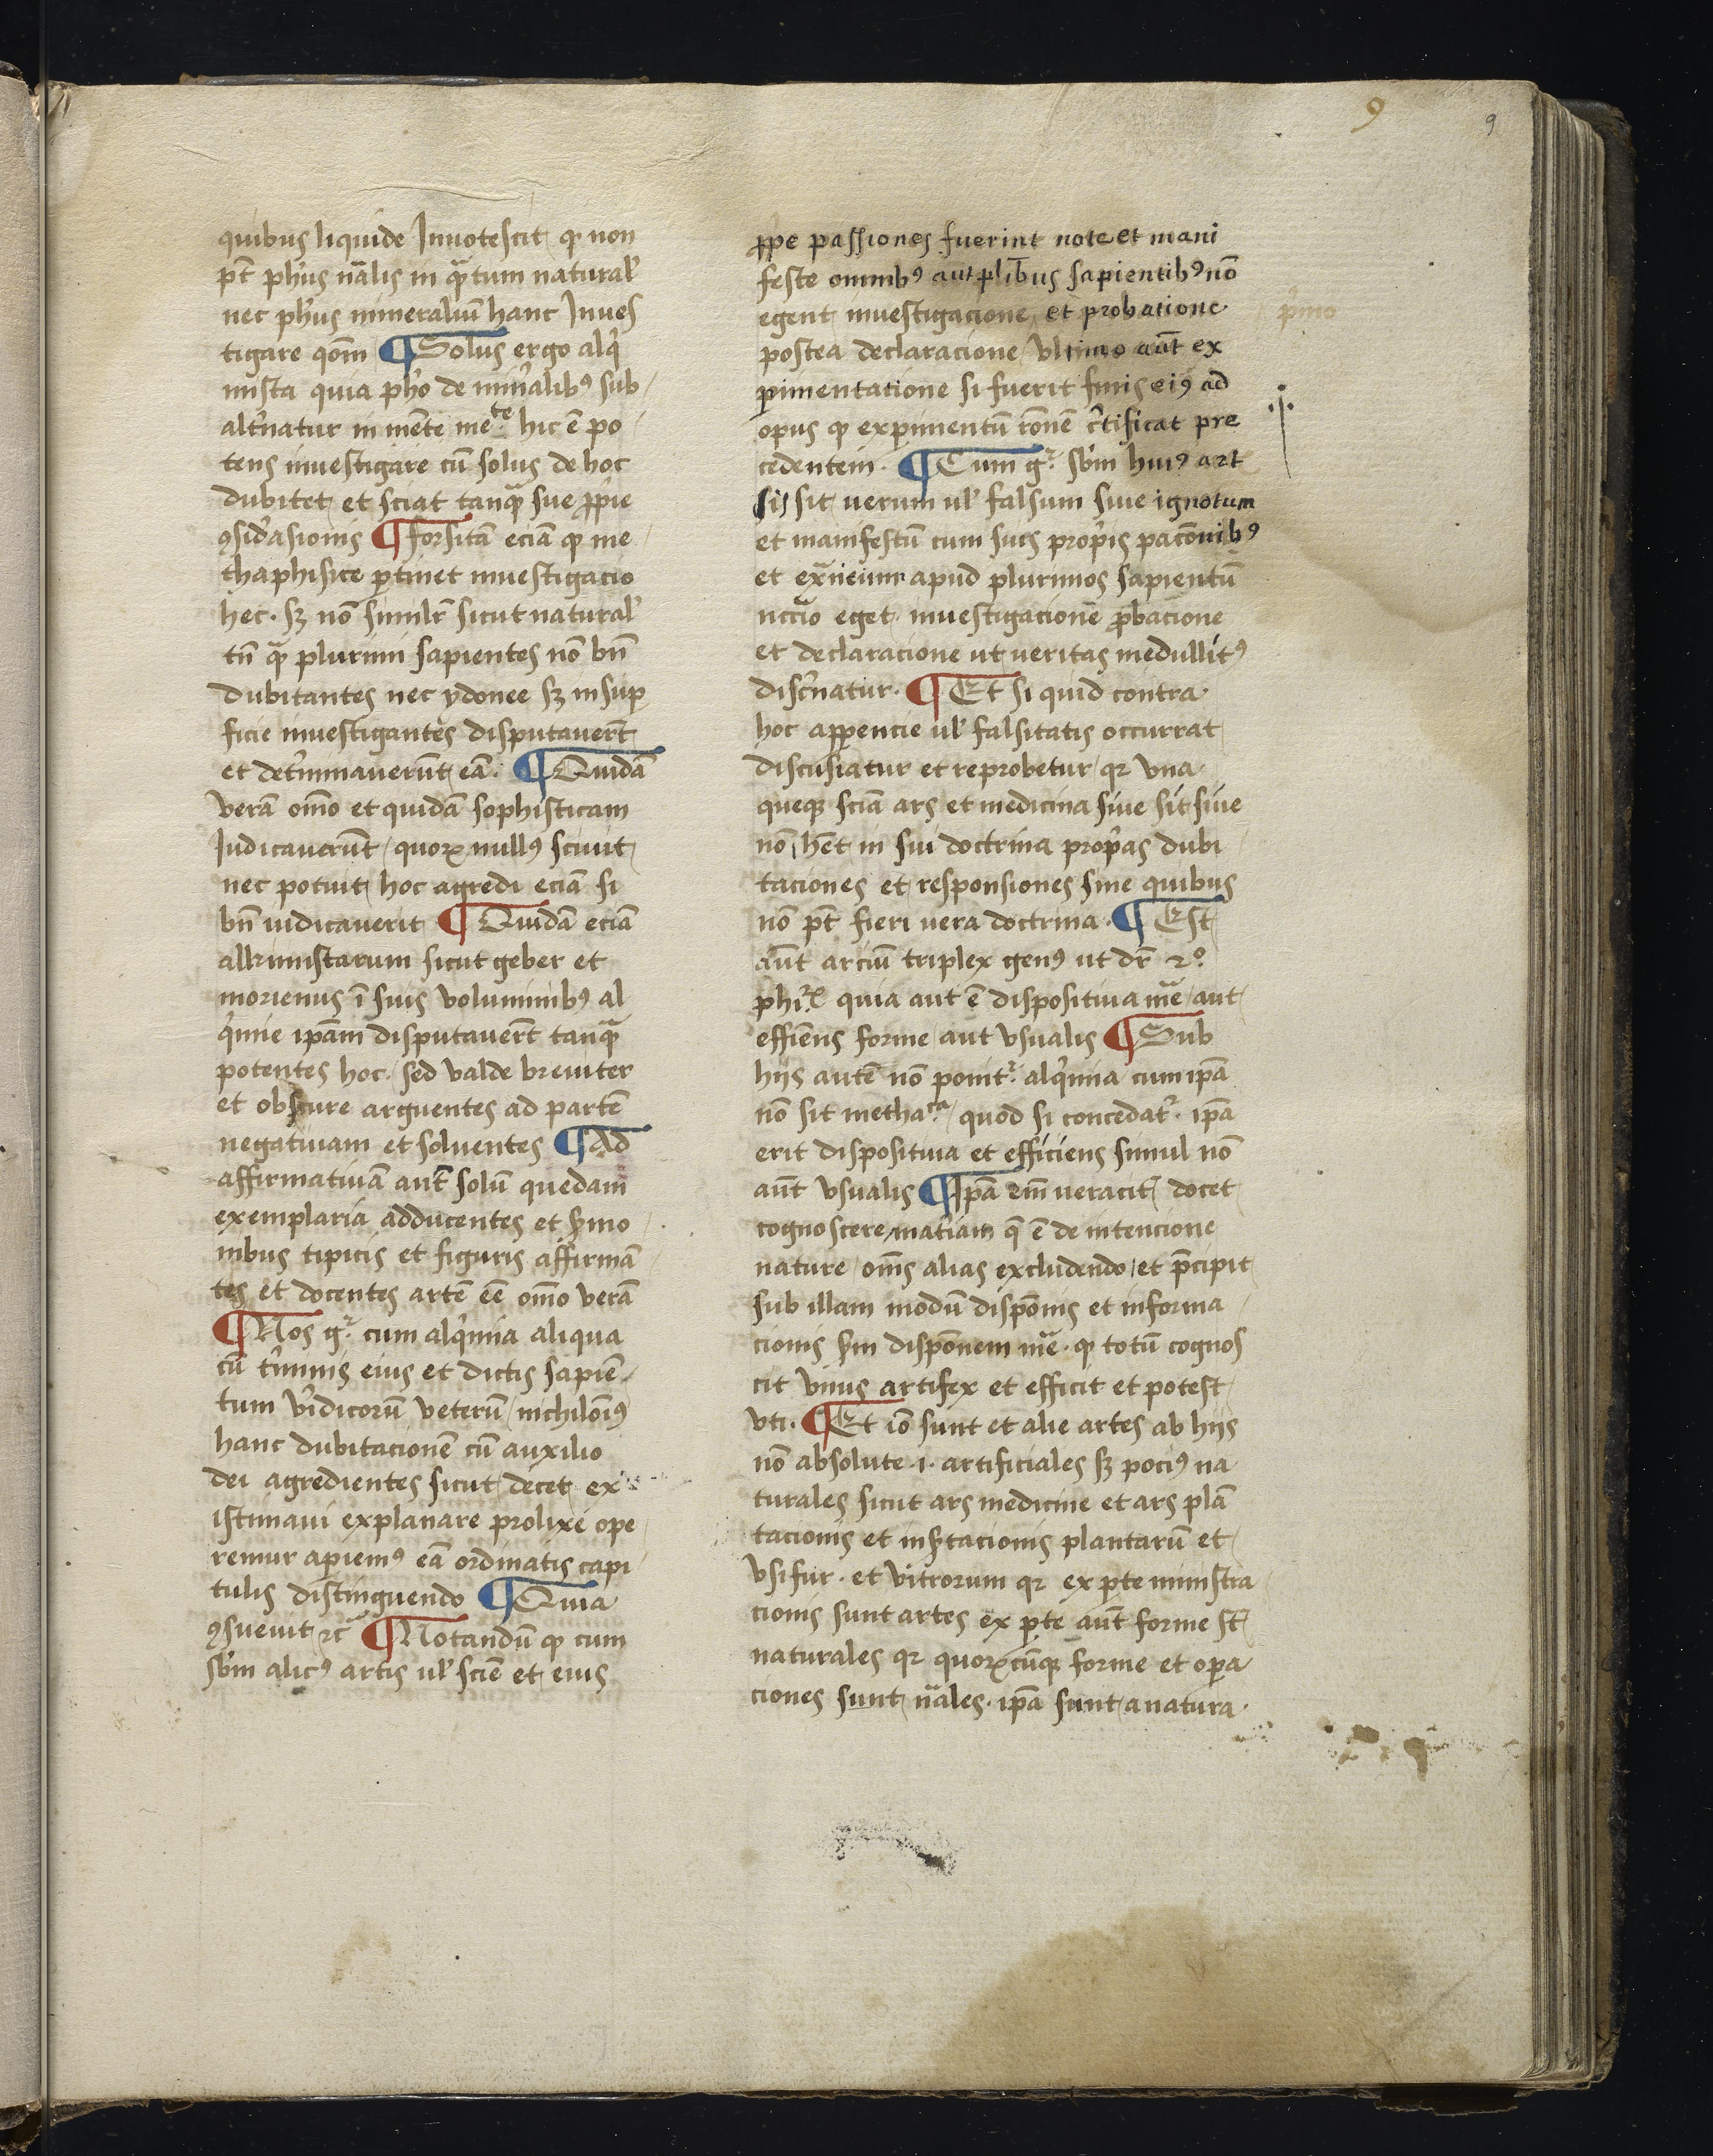 9
9
quibus liquide Innotescit qͥ non
pt̄ phūs nālis in qᷓtum natural̕
nec phūs mineraliū hanc Inues
tigare qōm ¶ Solus ergo alq̍
mista quia pho̕ de min̕alibꝰ sub
alt̕natur in mēte meͭͤ hic ē po
tens inuestigare cū solus de hoc
dubitet et sciat tanqᷓ sue ꝓp̍ie
ꝯsid̕asionis ¶ forsitā eciā qͥ me
thaphisice ꝑtinet inuestigacio
hec · sꝫ nō simil̕r sicut natural̕
tn̄ qᷓ plurimi sapientes nō bn̄
dubitantes nec ydonee sꝫ in suꝑ
ficie inuestigantes disputauer̄t
et det̕minauerūt eā · ¶ Quidā
verā om̄o et quidā sophisticam
Iudicauerūt quoꝝ nullꝰ sciuit
nec potuit hoc agredi eciā si
bn̄ iudicauerit ¶ Quidā eciā
alkimistarum sicut geber et
morienus ī suis voluminibꝰ al
q̍mie ipām disputauer̄t tanqᷓ
potentes hoc · sed valde breuiter
et obscure arguentes ad partē
negatiuam et soluentes ¶ Ad
affirmatiuā aut̄ solū quedam
exemplaria adducentes et s̕mo
nibus tipicis et figuris affirmā
tes et docentes artē ēē om̄o verā
¶ Nos gͬ cum alq̍mia aliqua
cū t̕minis eius et dictis sapiē
tum v̕idicorū veterū nichilōīꝰ
hanc dubitacionē cū auxilio
dei agredientes sicut decet ex
istimaui explanare prolixe ope
remur apiemꝰ eā ordinatis capi
tulis distinguendo ¶ Quia
ꝯsueuit ⁊c̄ ¶ Notandū qͥ cum
sb̕m alicꝰ artis ul̕ sciē et eius
ꝓp̍e passiones fuerint note et mani
feste omnibꝰ aut pl̄ibus sapientibꝰ nō
egent inuestigacione et probatione
postea declaracione vltimo aūt ex
ꝑimentatione si fuerit finis eiꝰ ad
opus qͥ exꝑimentū rōnē c̕tificat pre
cedentem · ¶ Cum gͬ sb̕m huiꝰ art
sis sit uerum ul̕ falsum siue ignotum
et manifestū cum suis prop̍is pacōnibꝰ
et apud plurimos sapientū
nccio eget · inuestigacionē ꝓbacione
et declaracione ut ueritas medullitꝰ
disc̕natur · ¶ Et si quid contra
hoc apparencie ul̕ falsitatis occurrat
discusiatur et reprobetur qꝛ vna
queqꝫ sciā ars et medicina siue sit siue
nō hēt in sui doctrina prop̍as dubi
taciones et responsiones sine quibus
nō pt̄ fieri uera doctrina · ¶ Est
aūt arciū triplex genꝰ ut dr̄ 2º
phi. quia aut ē dispositiua māe aut
effiēns forme aut vsualis ¶ Sub
hijs autē nō ponitͬ alq̍mia cum ipā
nō sit methacͣ quod si concedatͬ · ipā
erit dispositiua et efficiens simul nō
aūt vsualis ¶ Ipā em̄ ueracit̕ docet
cognoscere mat̕iam q̄ ē de intencione
nature om̄s alias excludendo et p̄cipit
sub illam modū dispōnis et informa
cionis sm̄ dispōnem māe · qͥ totū cognos
cit vnus artifex et efficit et potest
vti · ¶ Et iō sunt et alie artes ab hijs
nō absolute · i · artificiales sꝫ pociꝰ na
turales sicut ars medicine et ars plā
tacionis et ins̕tacionis plantarū et
vsifur · et vitrorum qꝛ ex ꝑte ministra
cionis sunt artes ex ꝑte aūt forme st̄
naturales qꝛ quoꝝcūqꝫ forme et oꝑa
ciones sunt nāles · ipā sunt a natura ·
pͥmo